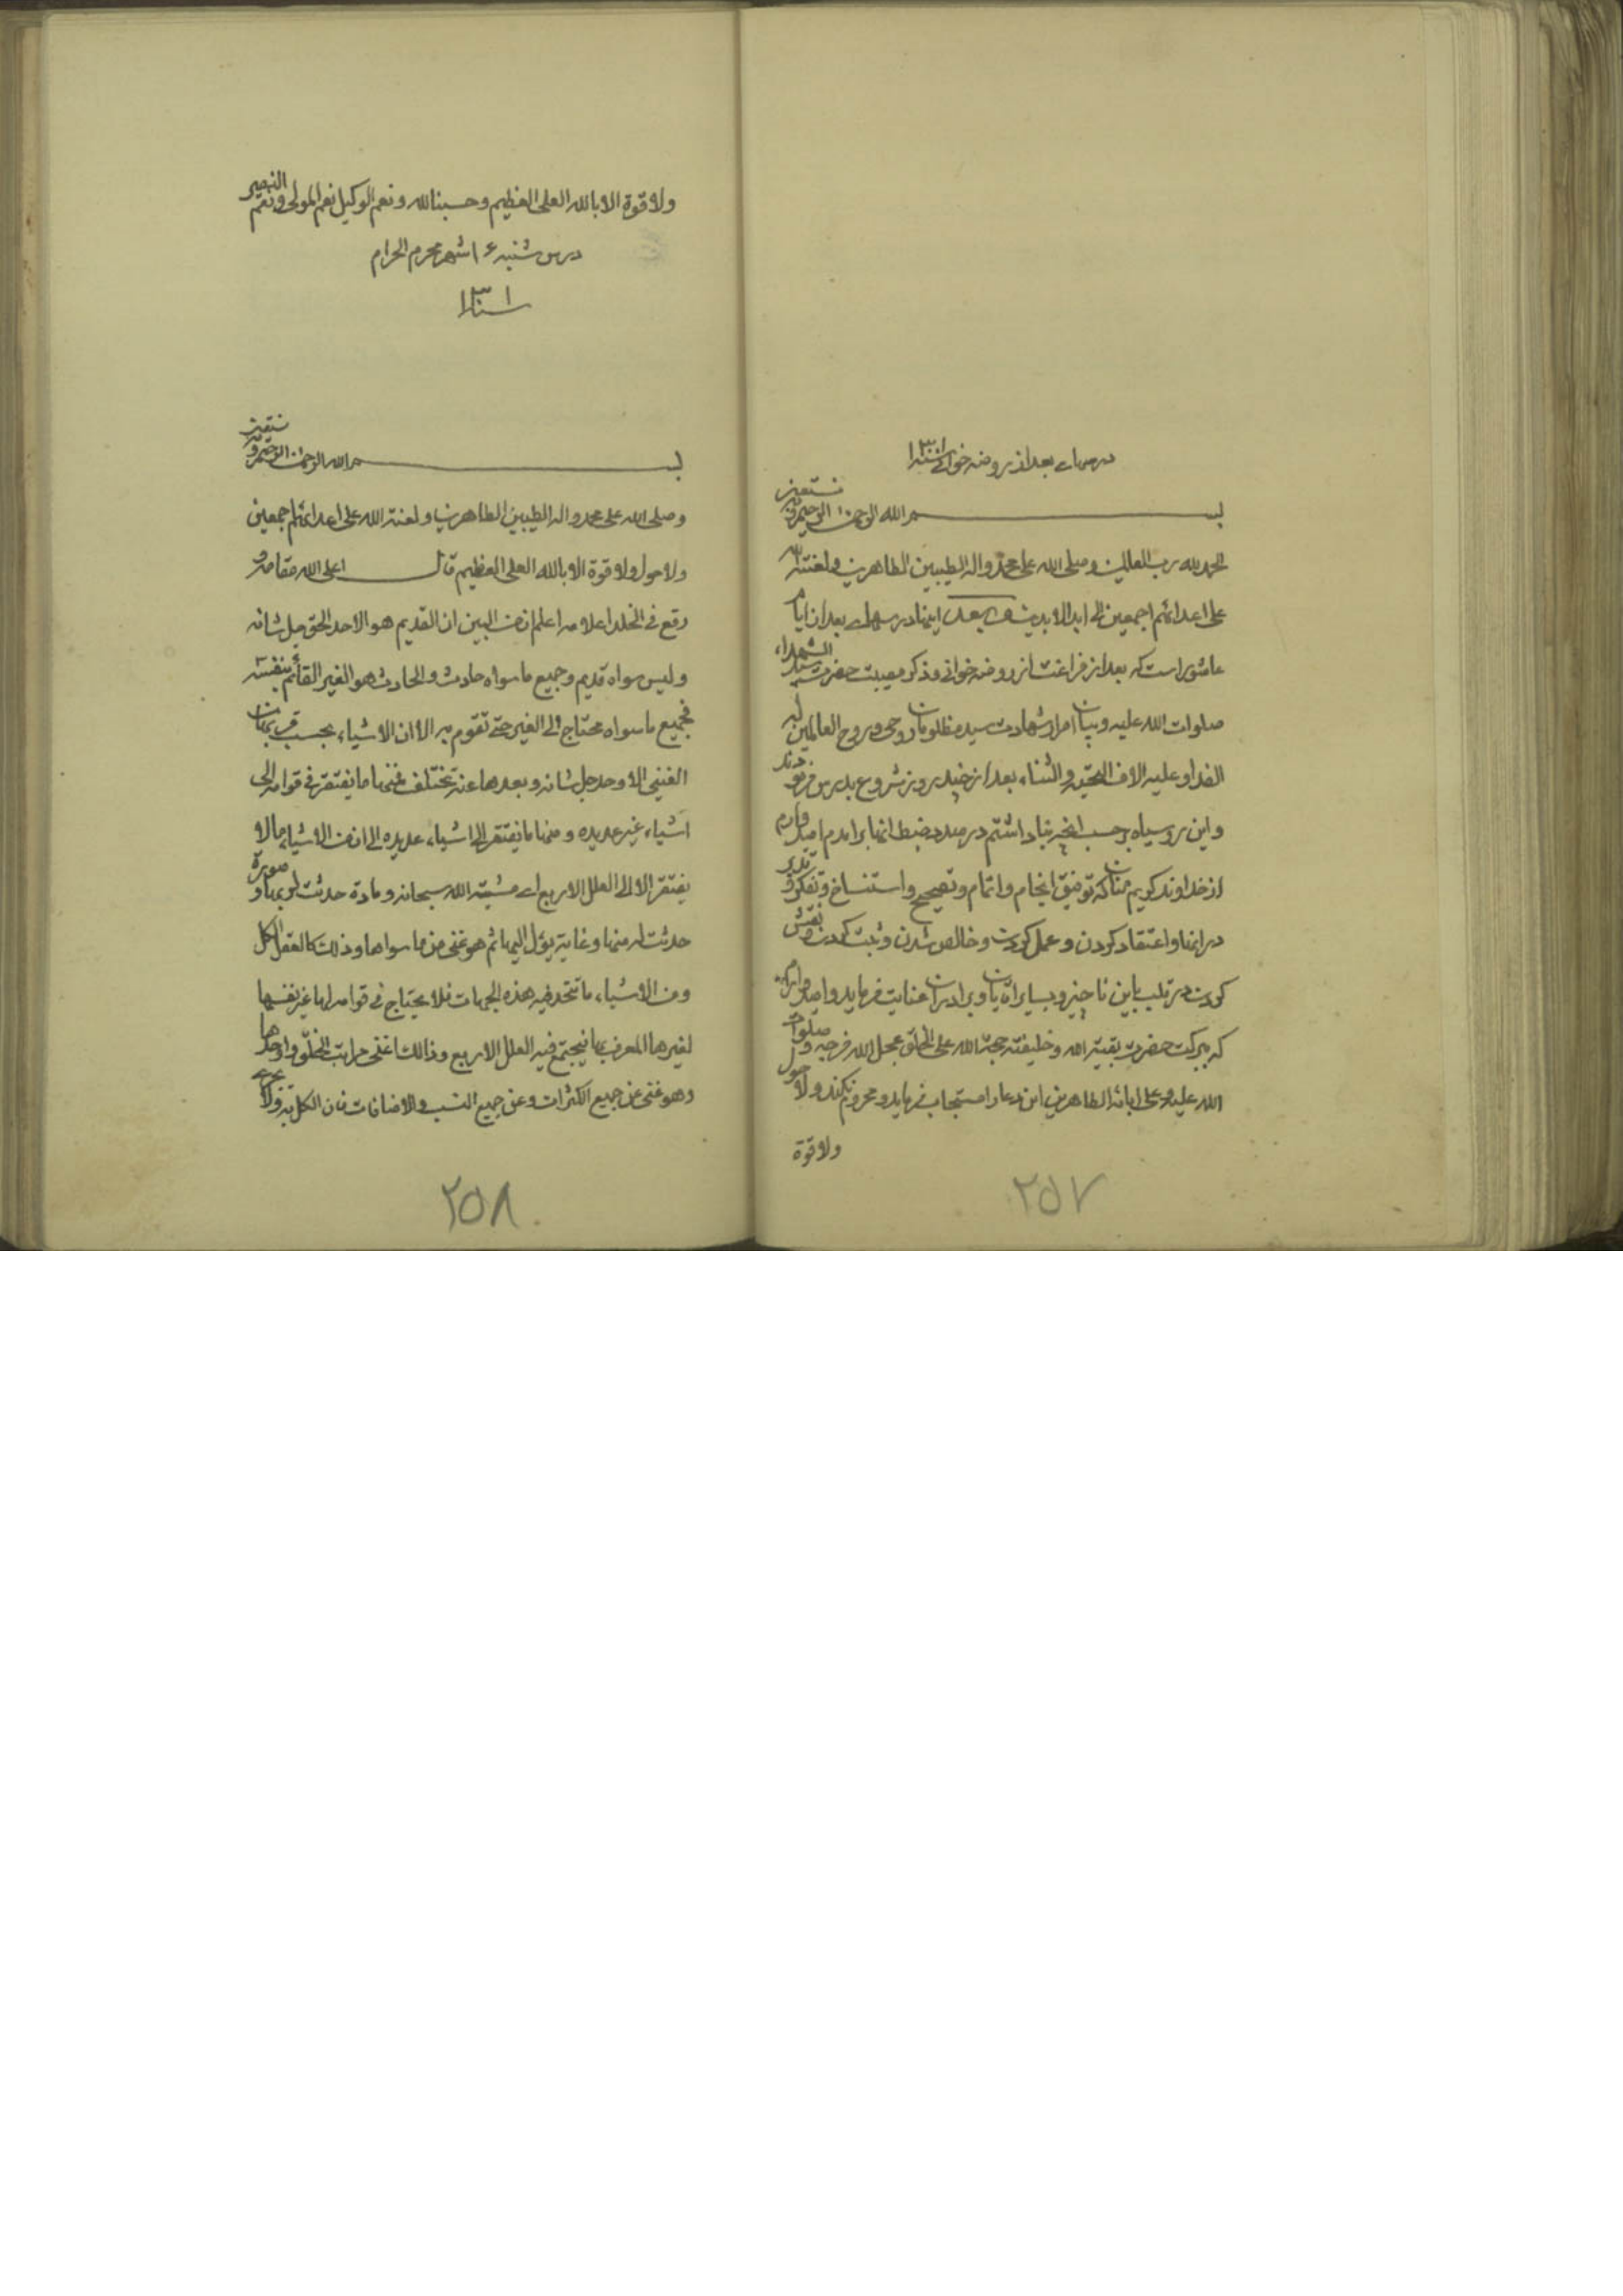 درسهاے بعد از روضه خوانی سنه ۱۳۰۱
بسم الله الرحمن الرحیم و به نستعین
الحمد لله رب العالمین و صلی الله علی محمد و اله الطیبین الطاهرین و لعنة الله
علی اعدائهم اجمعین الی ابد الابدین و بعد اینها درسهاے بعد از ایام
عاشورا است که بعد از فراغت از روضه خوانی و ذکر مصیبت حضرت سید الشهداء
صلوات الله علیه و بیان امر شهادت سید مظلومان روحی و روح العالمین له
الفداء و علیه الاف التحیة و الثناء بعد از چند روز شروع بدرس فرمودند
و این روسیاه بر حسب انچه بنا داشتم در صدد ضبط انها برامدم امیدوارم
از خداوند کریم منان که توفیق انجام و اتمام و تصحیح و استنساخ و تفکر و تدبر
در انها و اعتقاد کردن و عمل کردن و خالص شدن و ثبت کردن و نقش
کردن در قلب باین ناچیز و بسایر اقران و برادران عنایت فرماید و امیدوارم
که ببرکت حضرت بقیة الله و خلیفته حجة الله علی الخلق عجل الله فرجه و صلوات
الله علیه و علی ابائه الطاهرین این دعا را مستجاب فرماید و محروم نکند و لا حول
ولا قوة
۲۵۷
ولا قوة الا بالله العلی العظیم و حسبنا الله و نعم الوکیل نعم المولی و نعم النصیر
درس شنبه ۱۶ شهر محرم الحرام
سنه ۱۳۰۱
بسم الله الرحمن الرحیم و به نستعین
و صلی الله علی محمد و اله الطیبین الطاهرین و لعنة الله علی اعدائهم اجمعین
ولا حول ولا قوة الا بالله العلی العظیم قال اعلی الله مقامه و
رفع فی الخلد اعلامه اعلم ان من البین ان القدیم هو الاحد الحق جل شانه
و لیس سواه قدیم و جمیع ما سواه حادث و الحادث هو الغیر القائم بنفسه
فجمیع ما سواه محتاج الی الغیر حتی تقوم به الا ان الاشیاء بحسب قربها من
الغنی الاوحد جل شانه و بعدها عنه تختلف فمنها ما یفتقر فی قوامه الی
اشیاء غیر عدیده و منها ما یفتقر الی اشیاء عدیده الی ان من الاشیاء ما لا
یفتقر الا الی العلل الاربع اے مشیة الله سبحانه و مادة حدثت له بها و صورة
حدثت له منها و غایة یؤل الیها ثم هو غنی من ما سواها و ذلک کالعقل الکل
و من الاشیاء ما تتحد فیه هذه الجهات فلا یحتاج فی قوامه لها غیر نفسها
لغیرها المعرف بها فیجتمع فیه العلل الاربع و ذالک اغنی مراتب الخلق و اوحدها
و هو غنی عن جمیع الکثرات و عن جمیع النسب و الاضافات فان الکل به
۲۵۸